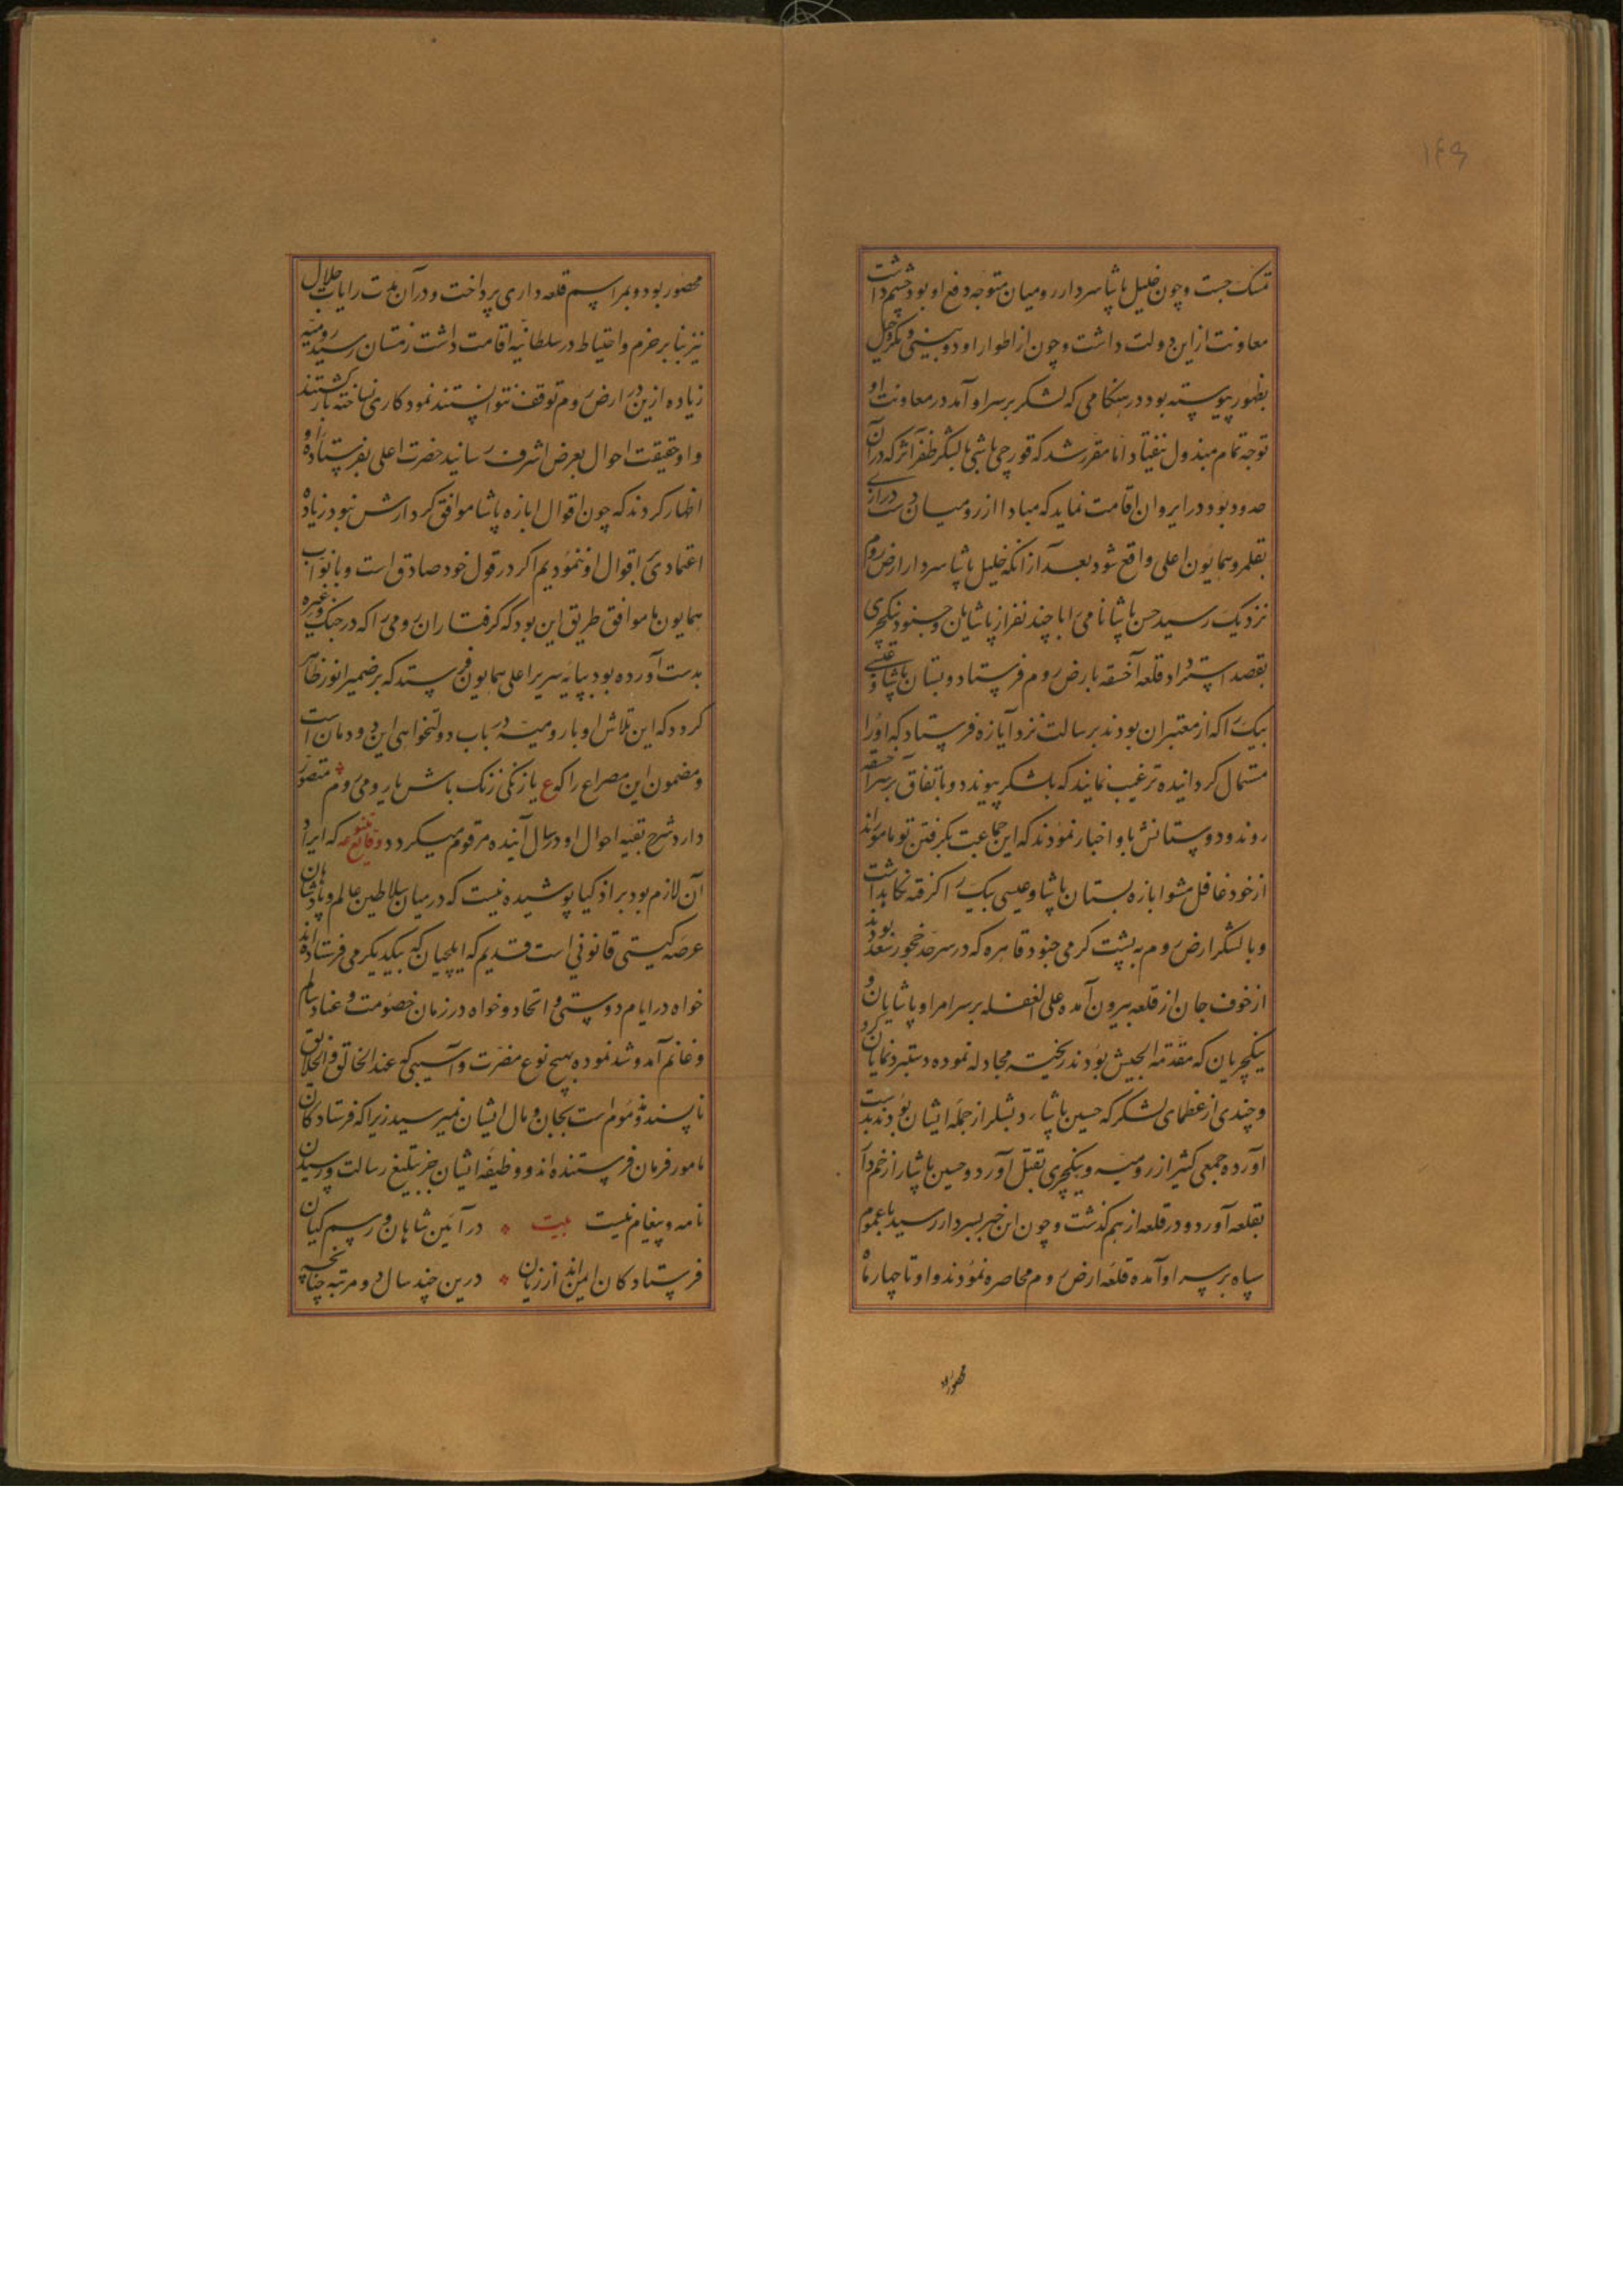 ۱۴۹
تمسک جست و چون خلیل پاشا سردار رومیان متوجه دفع او بود چشم داشت
معاونت از این دولت داشت و چون از اطوار او دوبینی و مکر و حیل
بظهور پیوسته بود در هنکامی که لشکر بر سر او آمد در معاونت او
توجه تمام مبذول نیفتاد اما مقرر شد که قورچی باشی با لشکر ظفر اثر که در آن
حدود بود در ایروان اقامت نماید که مبادا از رومیان دست درازی
بقلمرو همایون اعلی واقع شود بعد از آنکه خلیل پاشا سردار ارض روم
نزدیک رسید حسن پاشا نامی را با چند نفر از پاشایان و جنود ینکچری
بقصد استرداد قلعه آخسقه بارض روم فرستاد و بستان پاشا و عیسی
بیک را که از معتبران بودند برسالت نزد ابازه فرستاد که او را
مستمال کردانیده ترغیب نمایند که بلشکر پیوندد و باتفاق بر سر آخسقه
روند و دوستانش باو اخبار نمودند که این جماعت بکرفتن تو مامورند
از خود غافل مشو ابازه بستان پاشا و عیسی بیک را کرفته نکاهداشت
و با لشکر ارض روم به پشت کرمی جنود قاهره که در سرحد خجور سعد بودند
از خوف جان از قلعه بیرون آمده علی الغفله بر سر امرا و پاشایان و
ینکچریان که مقدمة الجیش بودند ریخته مجادله نموده دستبرد نمایان کرد
و چندی از عظمای لشکر که حسین پاشا از جمله ایشان بودند بدست
آورده جمعی کثیر از رومیه و ینکچری بقتل آورد و حسین پاشا را زخم دار
بقلعه آورد و در قلعه از هم کذشت و چون این خبر بسردار رسید با عموم
سپاه بر سر او آمده قلعه ارض روم محاصره نمودند و او تا چهار ماه
محصور بود
محصور بود و بمراسم قلعه داری پرداخت و در آن مدت رایات جلال
نیز بنابر حزم و احتیاط در سلطانیه اقامت داشت زمستان رسید رومیه
زیاده از این در ارض روم توقف نتوانستند نمود کاری نساخته بازکشتند
و او حقیقت احوال بعرض اشرف رسانید حضرت اعلی بفرستاده او
اظهار کردند که چون اقوال ابازه پاشا موافق کردارش نبود زیاده
اعتمادی باقوال او ننمودیم اکر در قول خود صادق است و با نواب
همایون ما موافق طریق این بود که کرفتاران رومی را که در جنک و غیره
بدست آورده بود بپایه سریر اعلی همایون فرستد که بر ضمیر انور ظاهر
کردد که این تلاش او با رومیه در باب دولتخواهی این دودمان است
و مضمون این مصراع را که ع یا زنکی زنک باش یا رومی روم متصور
دارد شرح بقیه احوال او در سال آینده مرقوم میکردد وقایع متنوعه که ایراد
آن لازم بود بر اذکیا پوشیده نیست که در میان سلاطین عالم و پادشاهان
عرصه کیتی قانونی است قدیم که ایلچیان که بیکدیکر می فرستاده اند
خواه در ایام دوستی و اتحاد و خواه در زمان خصومت و عناد سالم
و غانم آمد و شد نموده بهیچ نوع مضرت و آسیبی که عند الخالق و الخلایق
ناپسند و مذموم است بجان و مال ایشان نمیرسید زیرا که فرستادکان
مامور فرمان فرستنده اند و وظیفه ایشان جز تبلیغ رسالت و رسیدن
نامه و پیغام نیست بیت در آئین شاهان و رسم کیان
فرستادکان ایمن اند از زیان درین چند سال دو مرتبه چنانچه